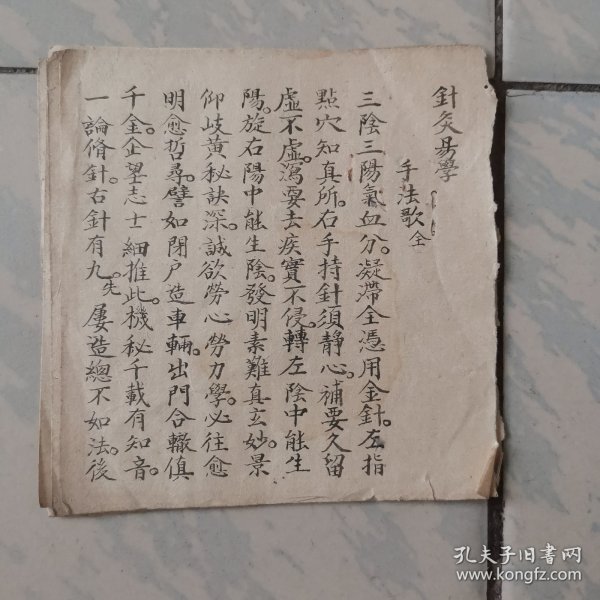 針灸易學
手法歌全
三陰三陽氣血分。凝滯全憑用金針。左指
點穴知真所。右手持針須静心。補要久留
虛不虛。瀉要去疾實不侵。轉左陰中能生
陽。旋右陽中能生陰。發明素難真玄妙。景
仰岐黃秘訣深。誠欲勞心勞力學。必往愈
明愈哲尋。譬如閉户造車輛。出門合轍値
千金。企望志士細推此。機秘千載有知音。
一論脩針右針有九。先屡造總不如法。後
孔夫子旧书网
www.kongfz.com